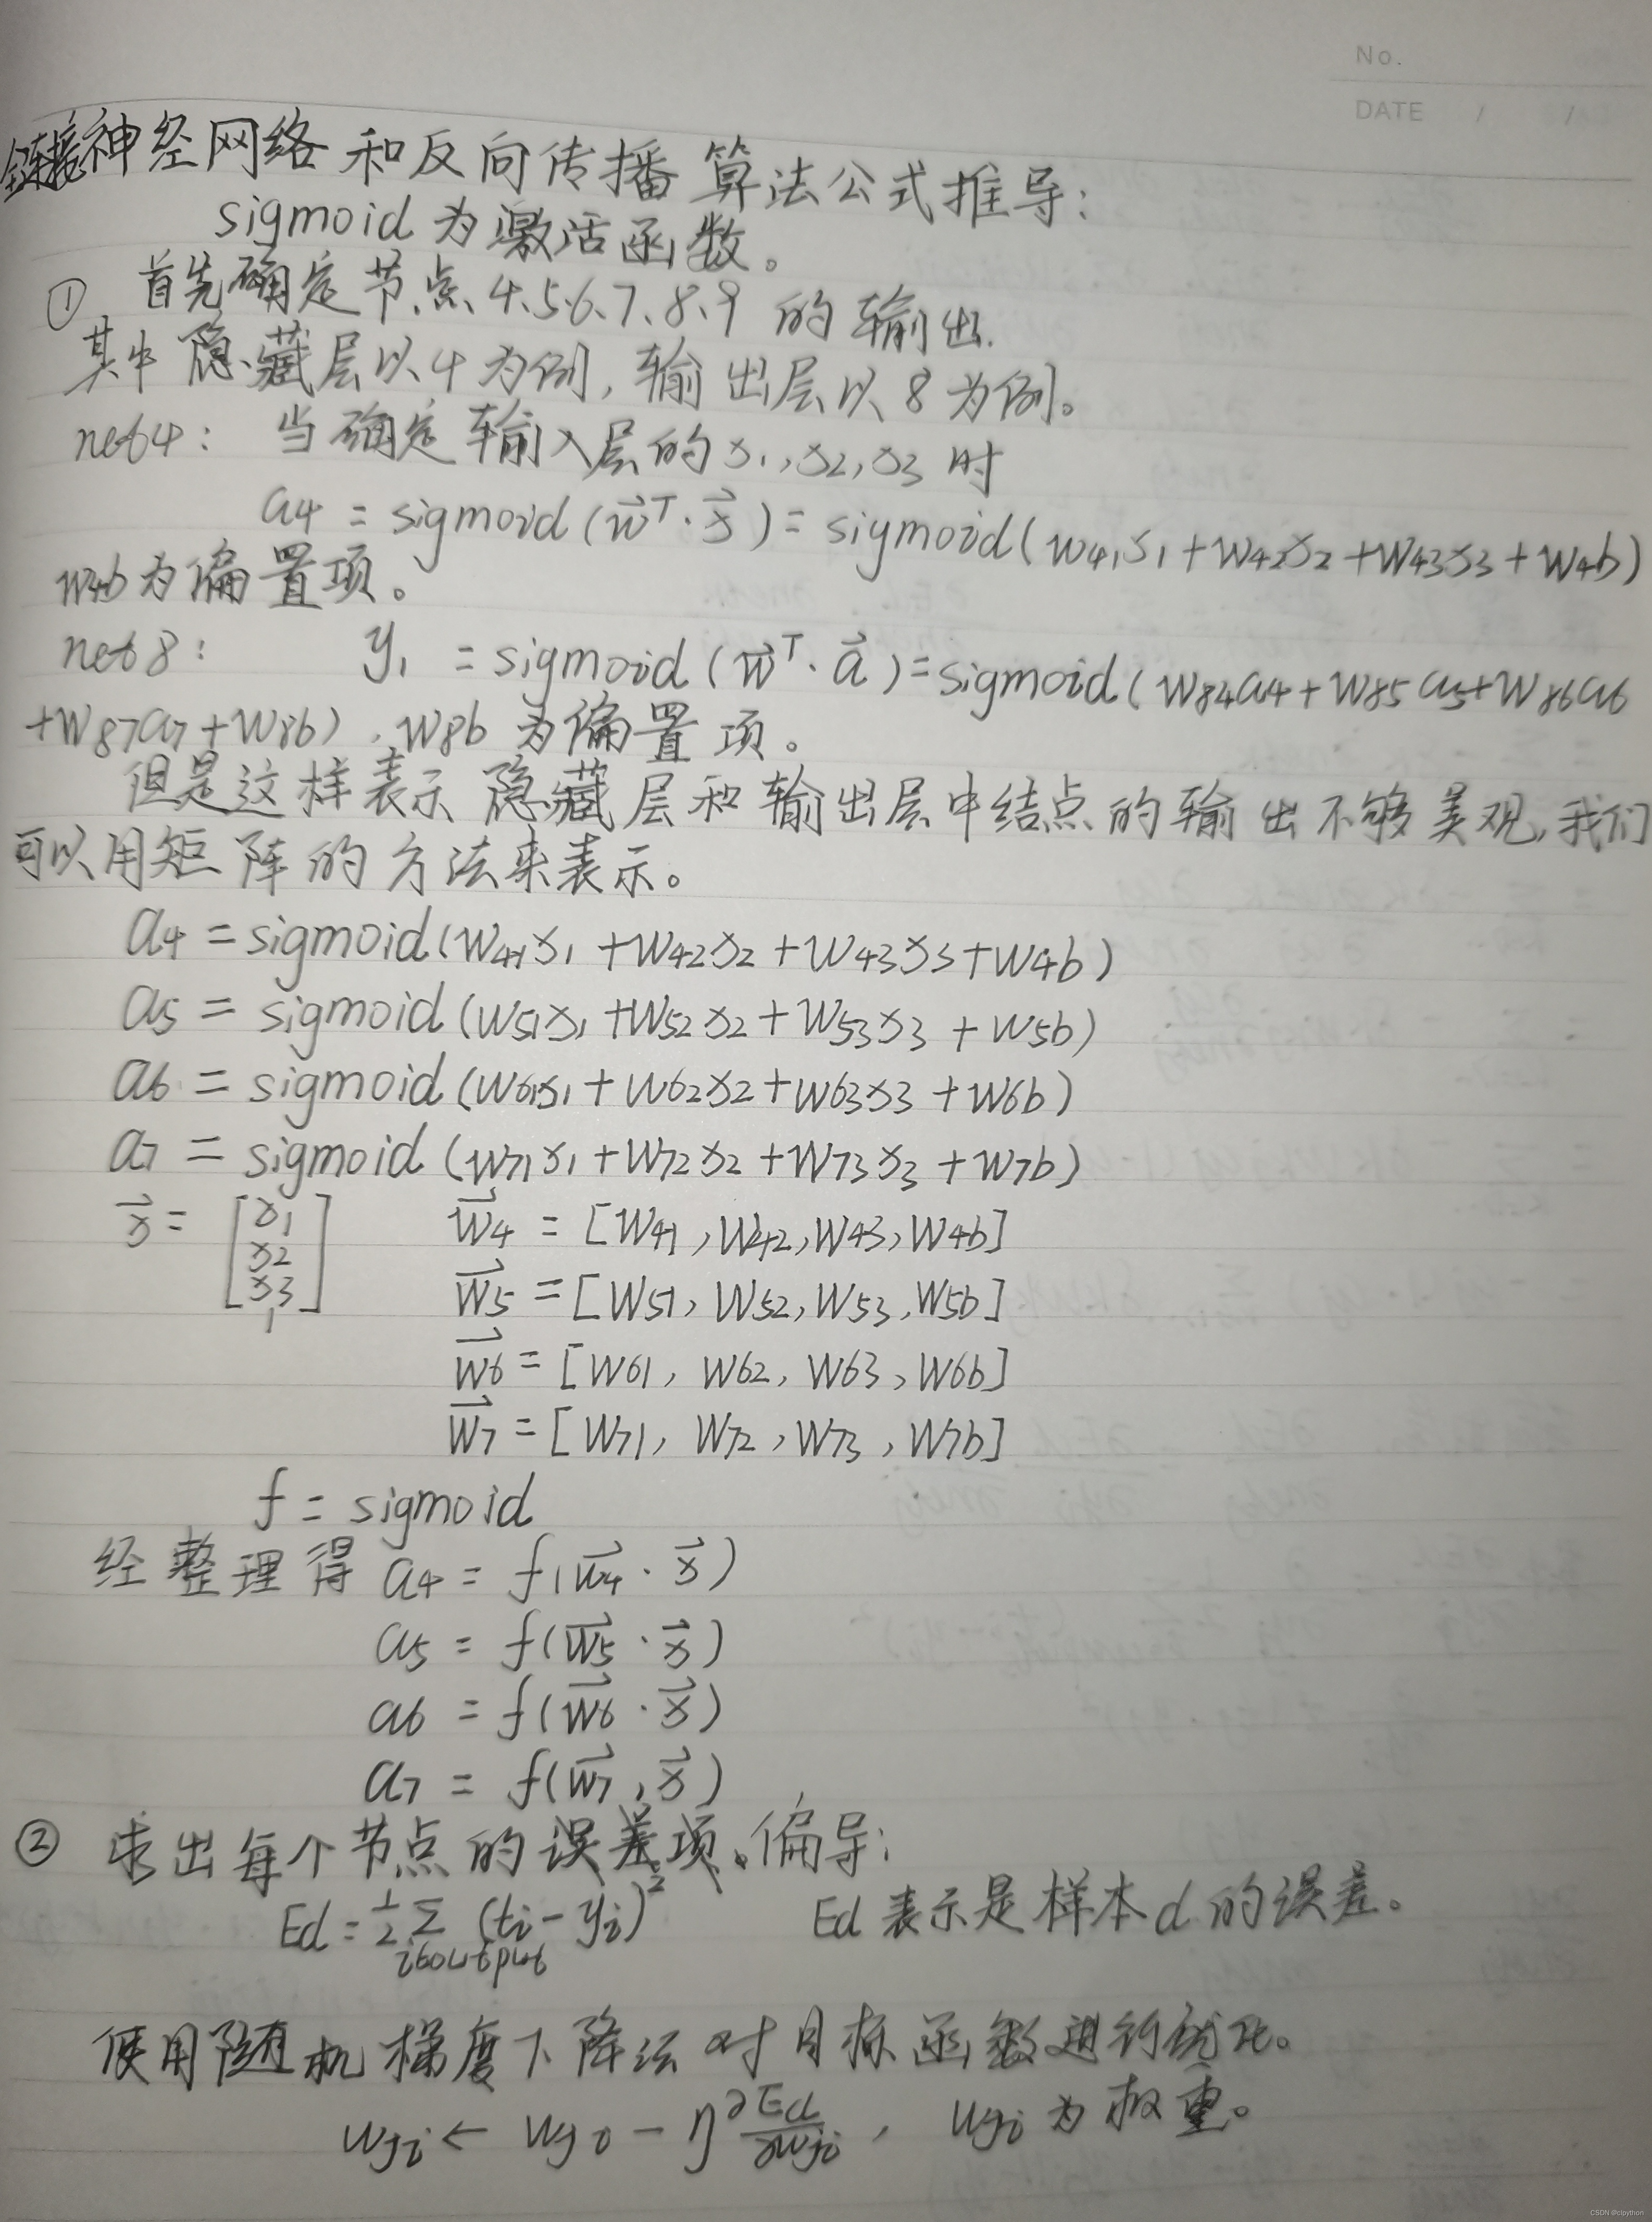 No.
DATE / /
全链接神经网络和反向传播算法公式推导:
sigmoid为激活函数。
① 首先确定节点4、5、6、7、8、9的输出.
其中隐藏层以4为例,输出层以8为例。
net4: 当确定输入层的x1,x2,x3时
a4 = sigmoid(w⃗ᵀ·x⃗) = sigmoid(w41x1+w42x2+w43x3+w4b)
w4b为偏置项。
net8: y1 = sigmoid(w⃗ᵀ·a⃗)=sigmoid(w84a4+w85a5+w86a6
+w87a7+w8b),w8b为偏置项。
但是这样表示隐藏层和输出层中结点的输出不够美观,我们
可以用矩阵的方法来表示。
a4 = sigmoid(w41x1+w42x2+w43x3+w4b)
a5 = sigmoid(w51x1+w52x2+w53x3+w5b)
a6 = sigmoid(w61x1+w62x2+w63x3+w6b)
a7 = sigmoid(w71x1+w72x2+w73x3+w7b)
x⃗ = [x1 x2 x3 1] w⃗4 = [w41,w42,w43,w4b]
w⃗5 = [w51,w52,w53,w5b]
w⃗6 = [w61,w62,w63,w6b]
w⃗7 = [w71,w72,w73,w7b]
f = sigmoid
经整理得 a4 = f(w⃗4·x⃗)
a5 = f(w⃗5·x⃗)
a6 = f(w⃗6·x⃗)
a7 = f(w⃗7,x⃗)
② 求出每个节点的误差项、偏导:
Ed = 1/2 Σ i∈output (ti-yi)² Ed表示是样本d的误差。
使用随机梯度下降法对目标函数进行优化。
wji ← wji - η ∂Ed/∂wji , wji为权重。
CSDN @clpython